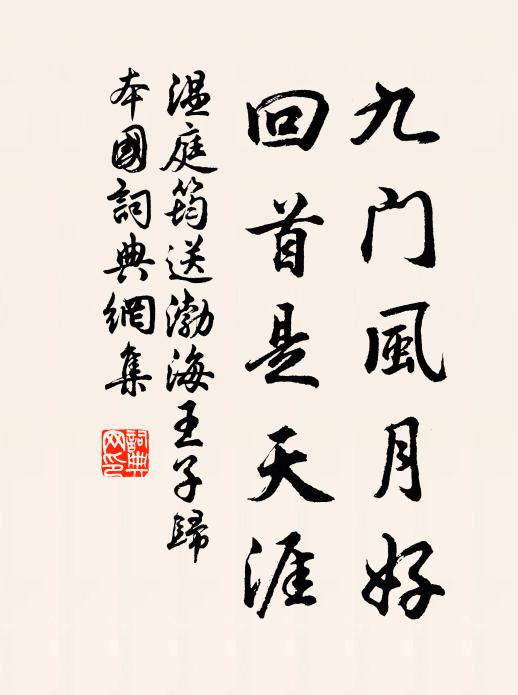 九门風月好
回首是天涯
温庭筠送渤海王子歸
本國詞典網集
詞典
网印